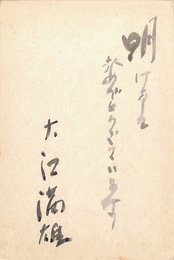 明けまして
おめでとうございます
大江満雄